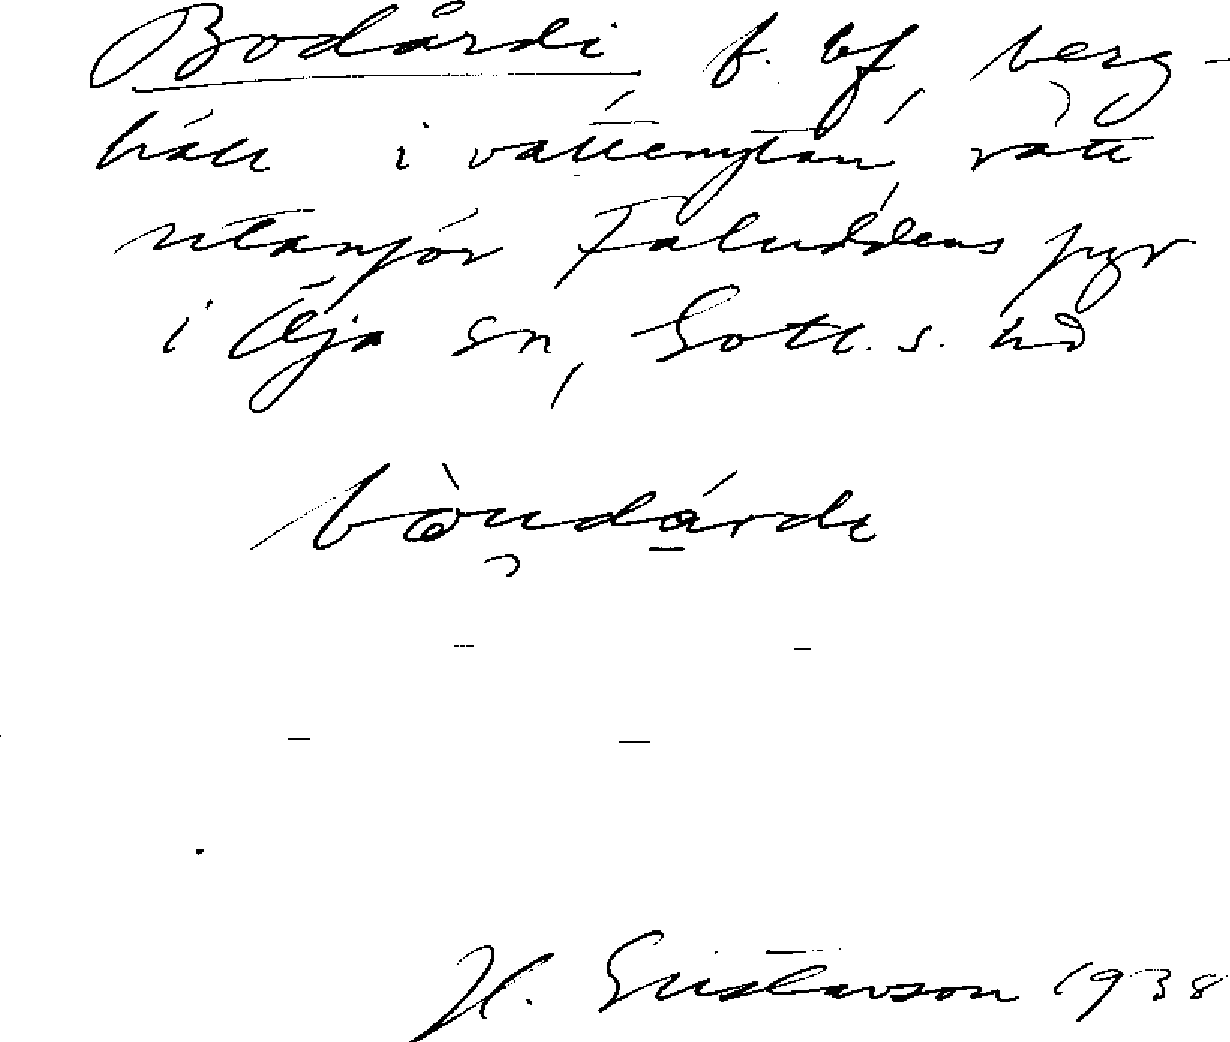 Bodårdi f. bf, berg-
häll i vattenytan, rätt
utanför Faluddens fyr
i Öja sn, Gotl. s. hd
H. Gustavson 1938